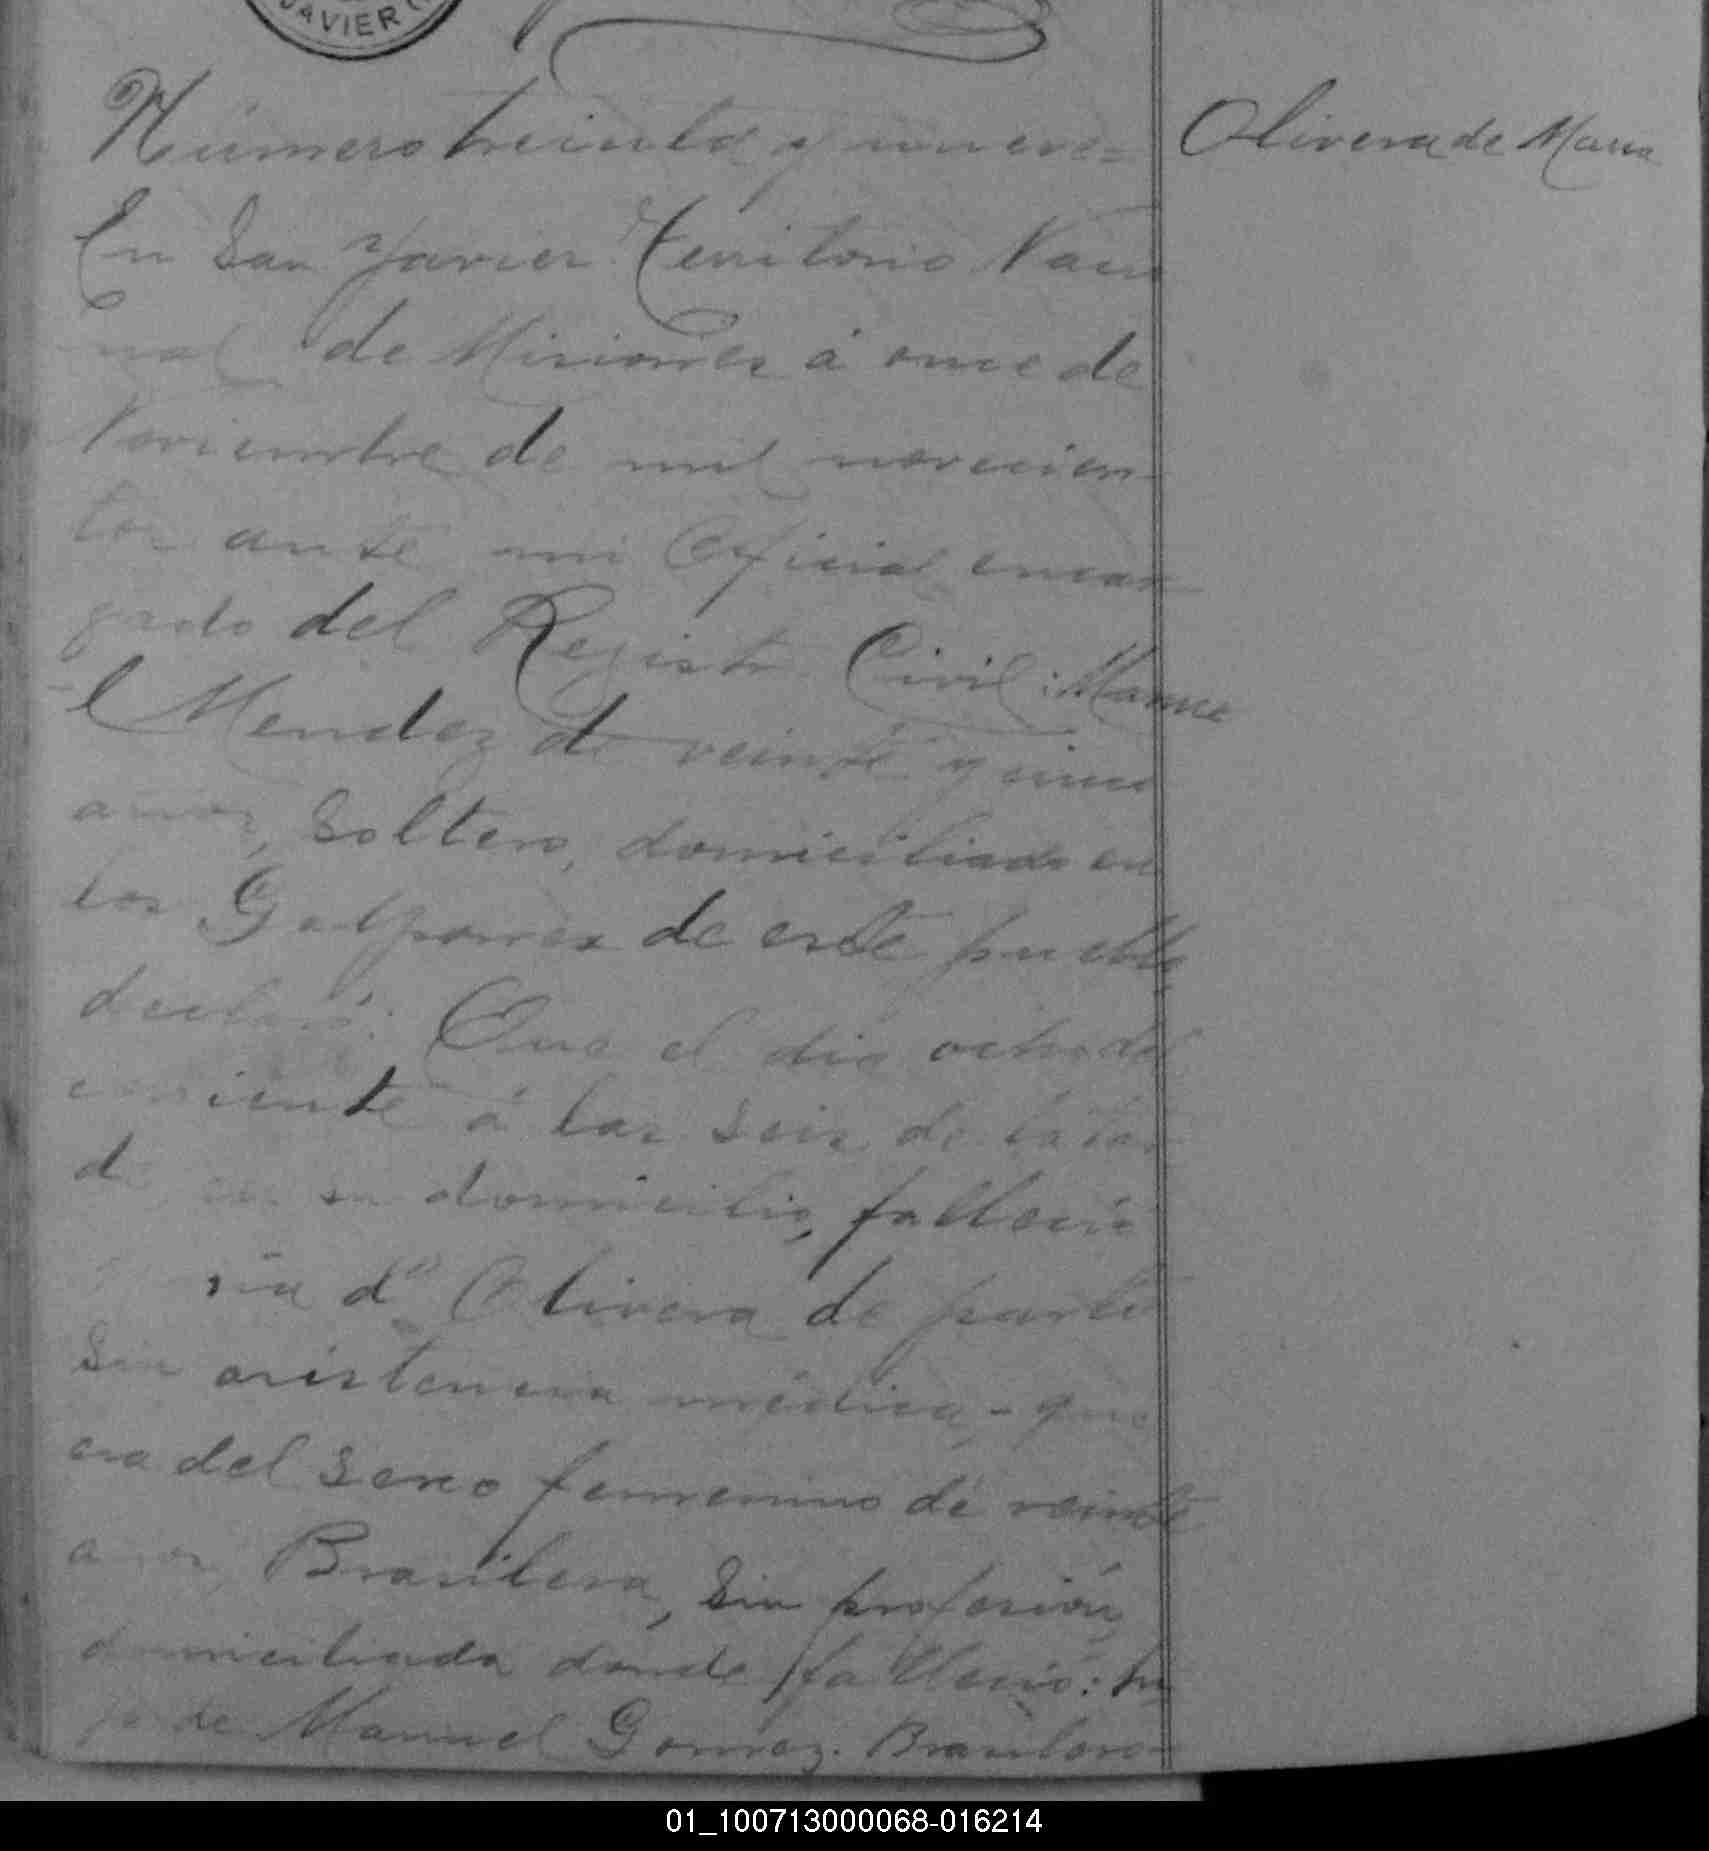 JAVIER
Número treinta y nueve= Olivera de Maria
En San Javier Territorio Nacio
nal de Misiones á once de
Noviembre de mil novecien-
tos ante mi Oficial encar-
gado del Registro Civil: Manue
l Mendez de veinte y cinco
años, Soltero, domiciliado en
los Galpones de este pueblo
declaró: Que el dia ocho del
corriente á las seis de la tar
de en su domicilio, falleció
ria d' Olivera de parto
Sin asistencia médica,- que
era del sexo femenino de veinte
años, Brasilera, Sin profesión,
domiciliada donde falleció: hi
ja de Manuel Gomez. Brasilero-
01_100713000068-016214